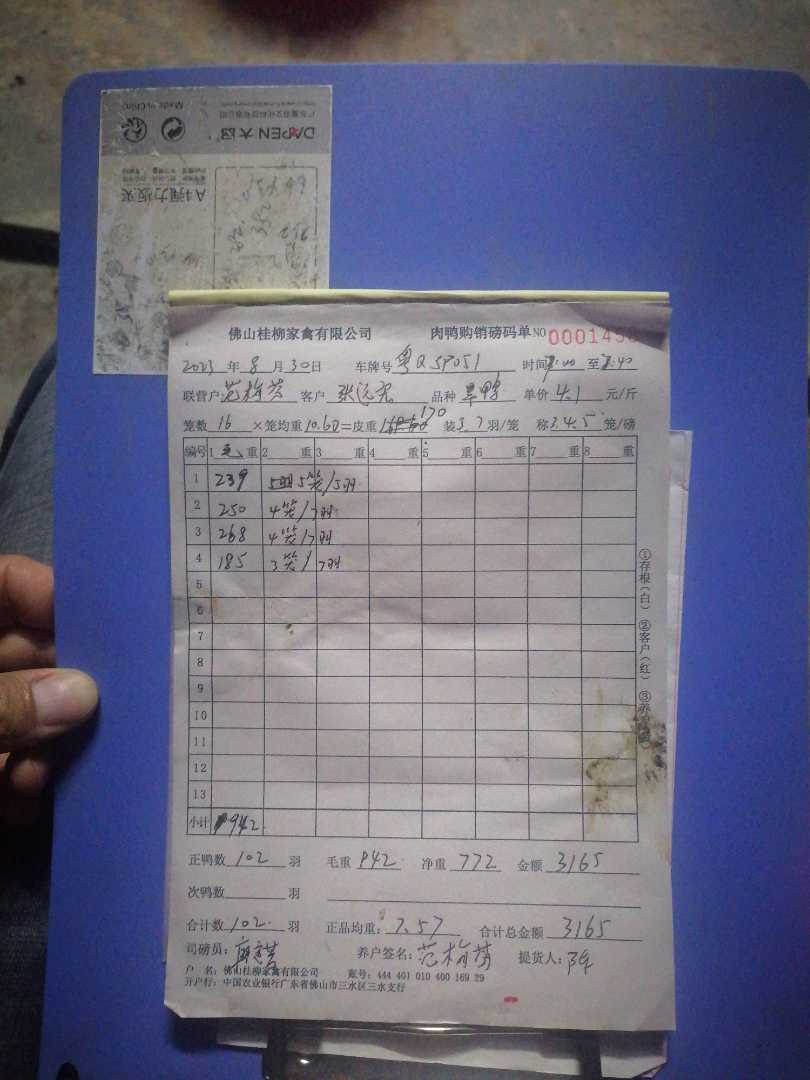 Made in China
DAPEN 大
A4强力板夹
佛山桂柳家禽有限公司 肉鸭购销磅码单 NO 00014
2023 年 8 月 30 日 车牌号 粤Q SP051 时间 至 :40
联营户 范梅芳 客户 张远 品种 旱鸭 单价 4.1 元/斤
笼数 16 ×笼均重 10.60 =皮重 170 装 5.7 羽/笼 称 3.4.5 笼/磅
编号 1 毛 重 2 重 3 重 4 重 5 重 6 重 7 重 8 重
1 239 5笼/5羽
2 250 4笼/7羽
3 268 4笼/7羽
4 185 3笼/7羽
5
6
7
8
9
10
11
12
13
小计 942
①存根(白) ②客户(红) ③养
正鸭数 102 羽 毛重 942 净重 772 金额 3165
次鸭数 羽
合计数 102 羽 正品均重: 7.57 合计总金额 3165
司磅员: 养户签名: 范梅芳 提货人:
户 名: 佛山桂柳家禽有限公司 账号: 444 401 010 400 169 29
开户行: 中国农业银行广东省佛山市三水区三水支行